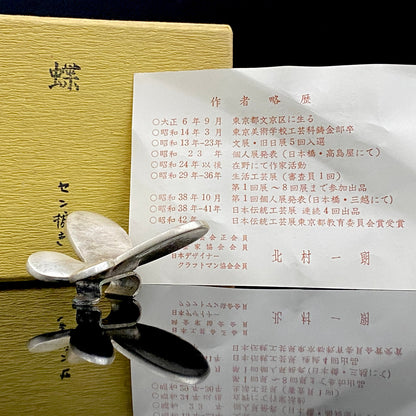 蝶
セン抜き
作者略歴
○大正 6年 9月 東京都文京区に生る
○昭和14年 3月 東京美術学校工芸科鋳金部卒
○昭和13年-23年 文展・旧日展5回入選
○昭和 23 年 個人展発表(日本橋・高島屋にて)
○昭和24年以後 在野にて作家活動
○昭和29年-36年 生活工芸展(審査員1回)
第1回展〜8回展まで参加出品
○昭和38年10月 第1回個人展発表(日本橋・三越にて)
○昭和38年-41年 日本伝統工芸展 連続4回出品
○昭和42年 日本伝統工芸展東京都教育委員会賞受賞
会正会員
家協会会員
日本デザイナー
クラフトマン協会会員
北村一